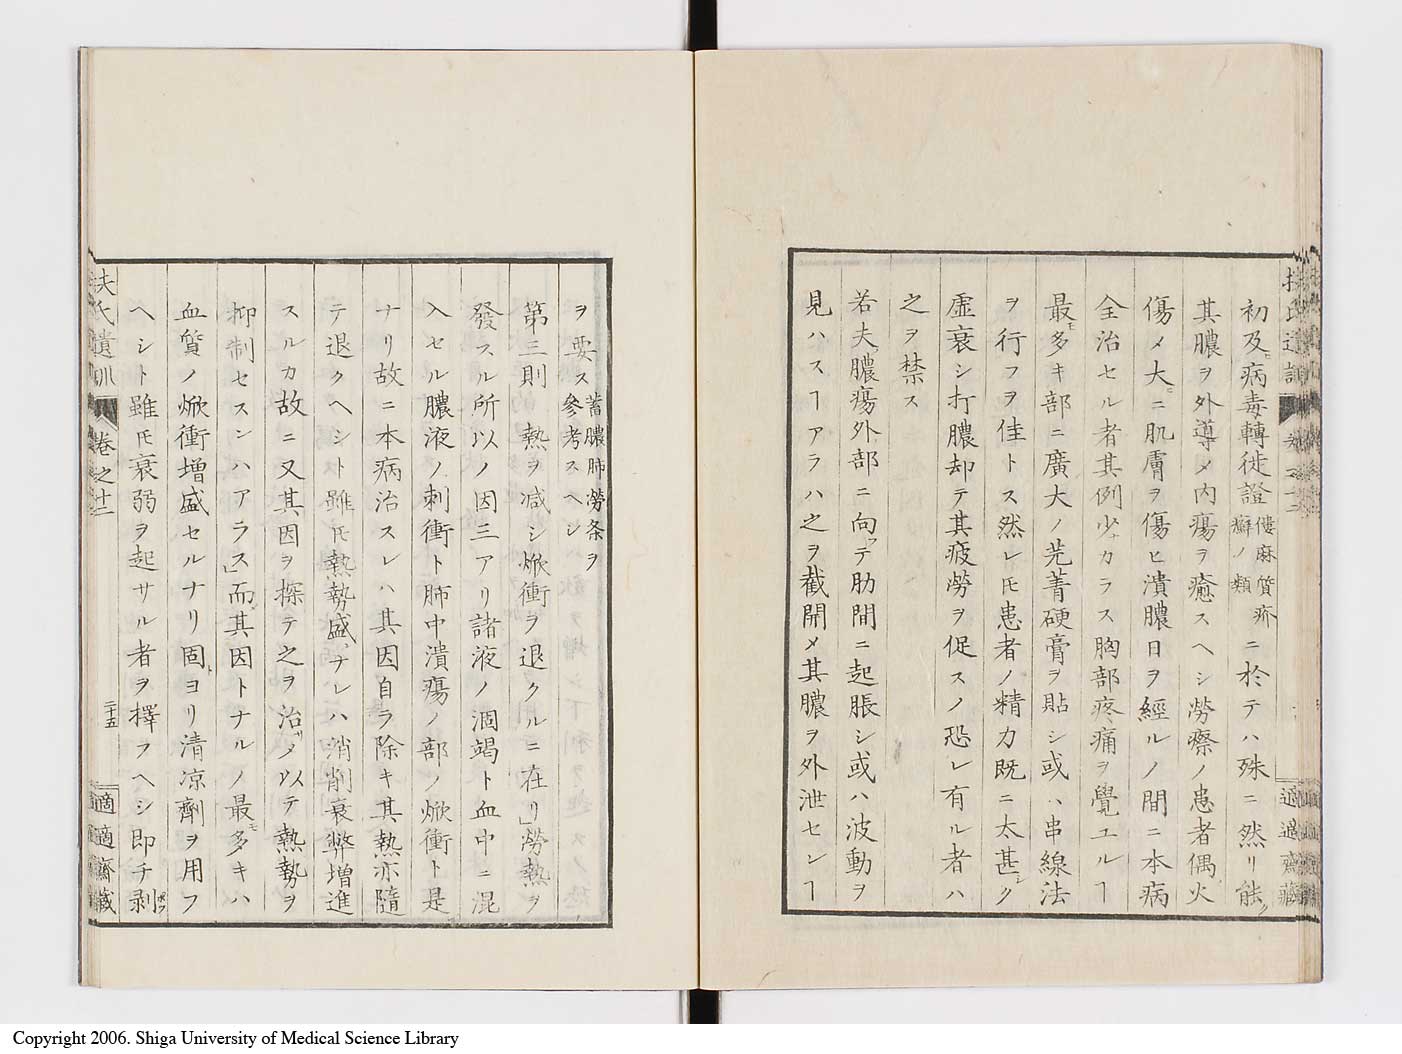 初及ヒ病毒轉徙證僂麻質疥癬ノ類ニ於テハ殊ニ然リ能ク
其膿ヲ外導メ内瘍ヲ癒スヘシ勞瘵ノ患者偶火
傷メ大ニ肌膚ヲ傷ヒ潰膿日ヲ經ルノ間ニ本病
全治セル者其例少カラス胸部疼痛ヲ覺エルヿ
最モ多キ部ニ廣大ノ芫菁硬膏ヲ貼シ或ハ串線法
ヲ行フヲ佳トス然レ𪜈患者ノ精力既ニ太甚シク
虚衰シ打膿却テ其疲勞ヲ促スノ恐レ有ル者ハ
之ヲ禁ス
若夫膿瘍外部ニ向テ肋間ニ起脹シ或ハ波動ヲ
見ハスヿアラハ之ヲ截開メ其膿ヲ外泄センヿ
ヲ要ス蓄膿肺勞条ヲ參考スヘシ
第三則 熱ヲ減シ焮衝ヲ退クルニ在リ」勞熱ヲ
發スル所以ノ因三アリ諸液ノ涸竭ト血中ニ混
入セル膿液ノ刺衝ト肺中潰瘍ノ部ノ焮衝ト是
ナリ故ニ本病治スレハ其因自ラ除キ其熱亦隨
テ退クヘシト雖𪜈熱勢盛ナレハ消削衰弊増進
スルカ故ニ又其因ヲ探テ之ヲ治メ以テ熱勢ヲ
抑制セスンハアラス」而其因トナルノ最モ多キハ
血質ノ焮衝増盛セルナリ固ヨリ清凉劑ヲ用フ
ヘシト雖𪜈衰弱ヲ起サル者ヲ擇フヘシ即チ剥
扶氏遺訓 卷之十二 二十五 適適齋藏
Copyright 2006. Shiga University of Medical Science Library